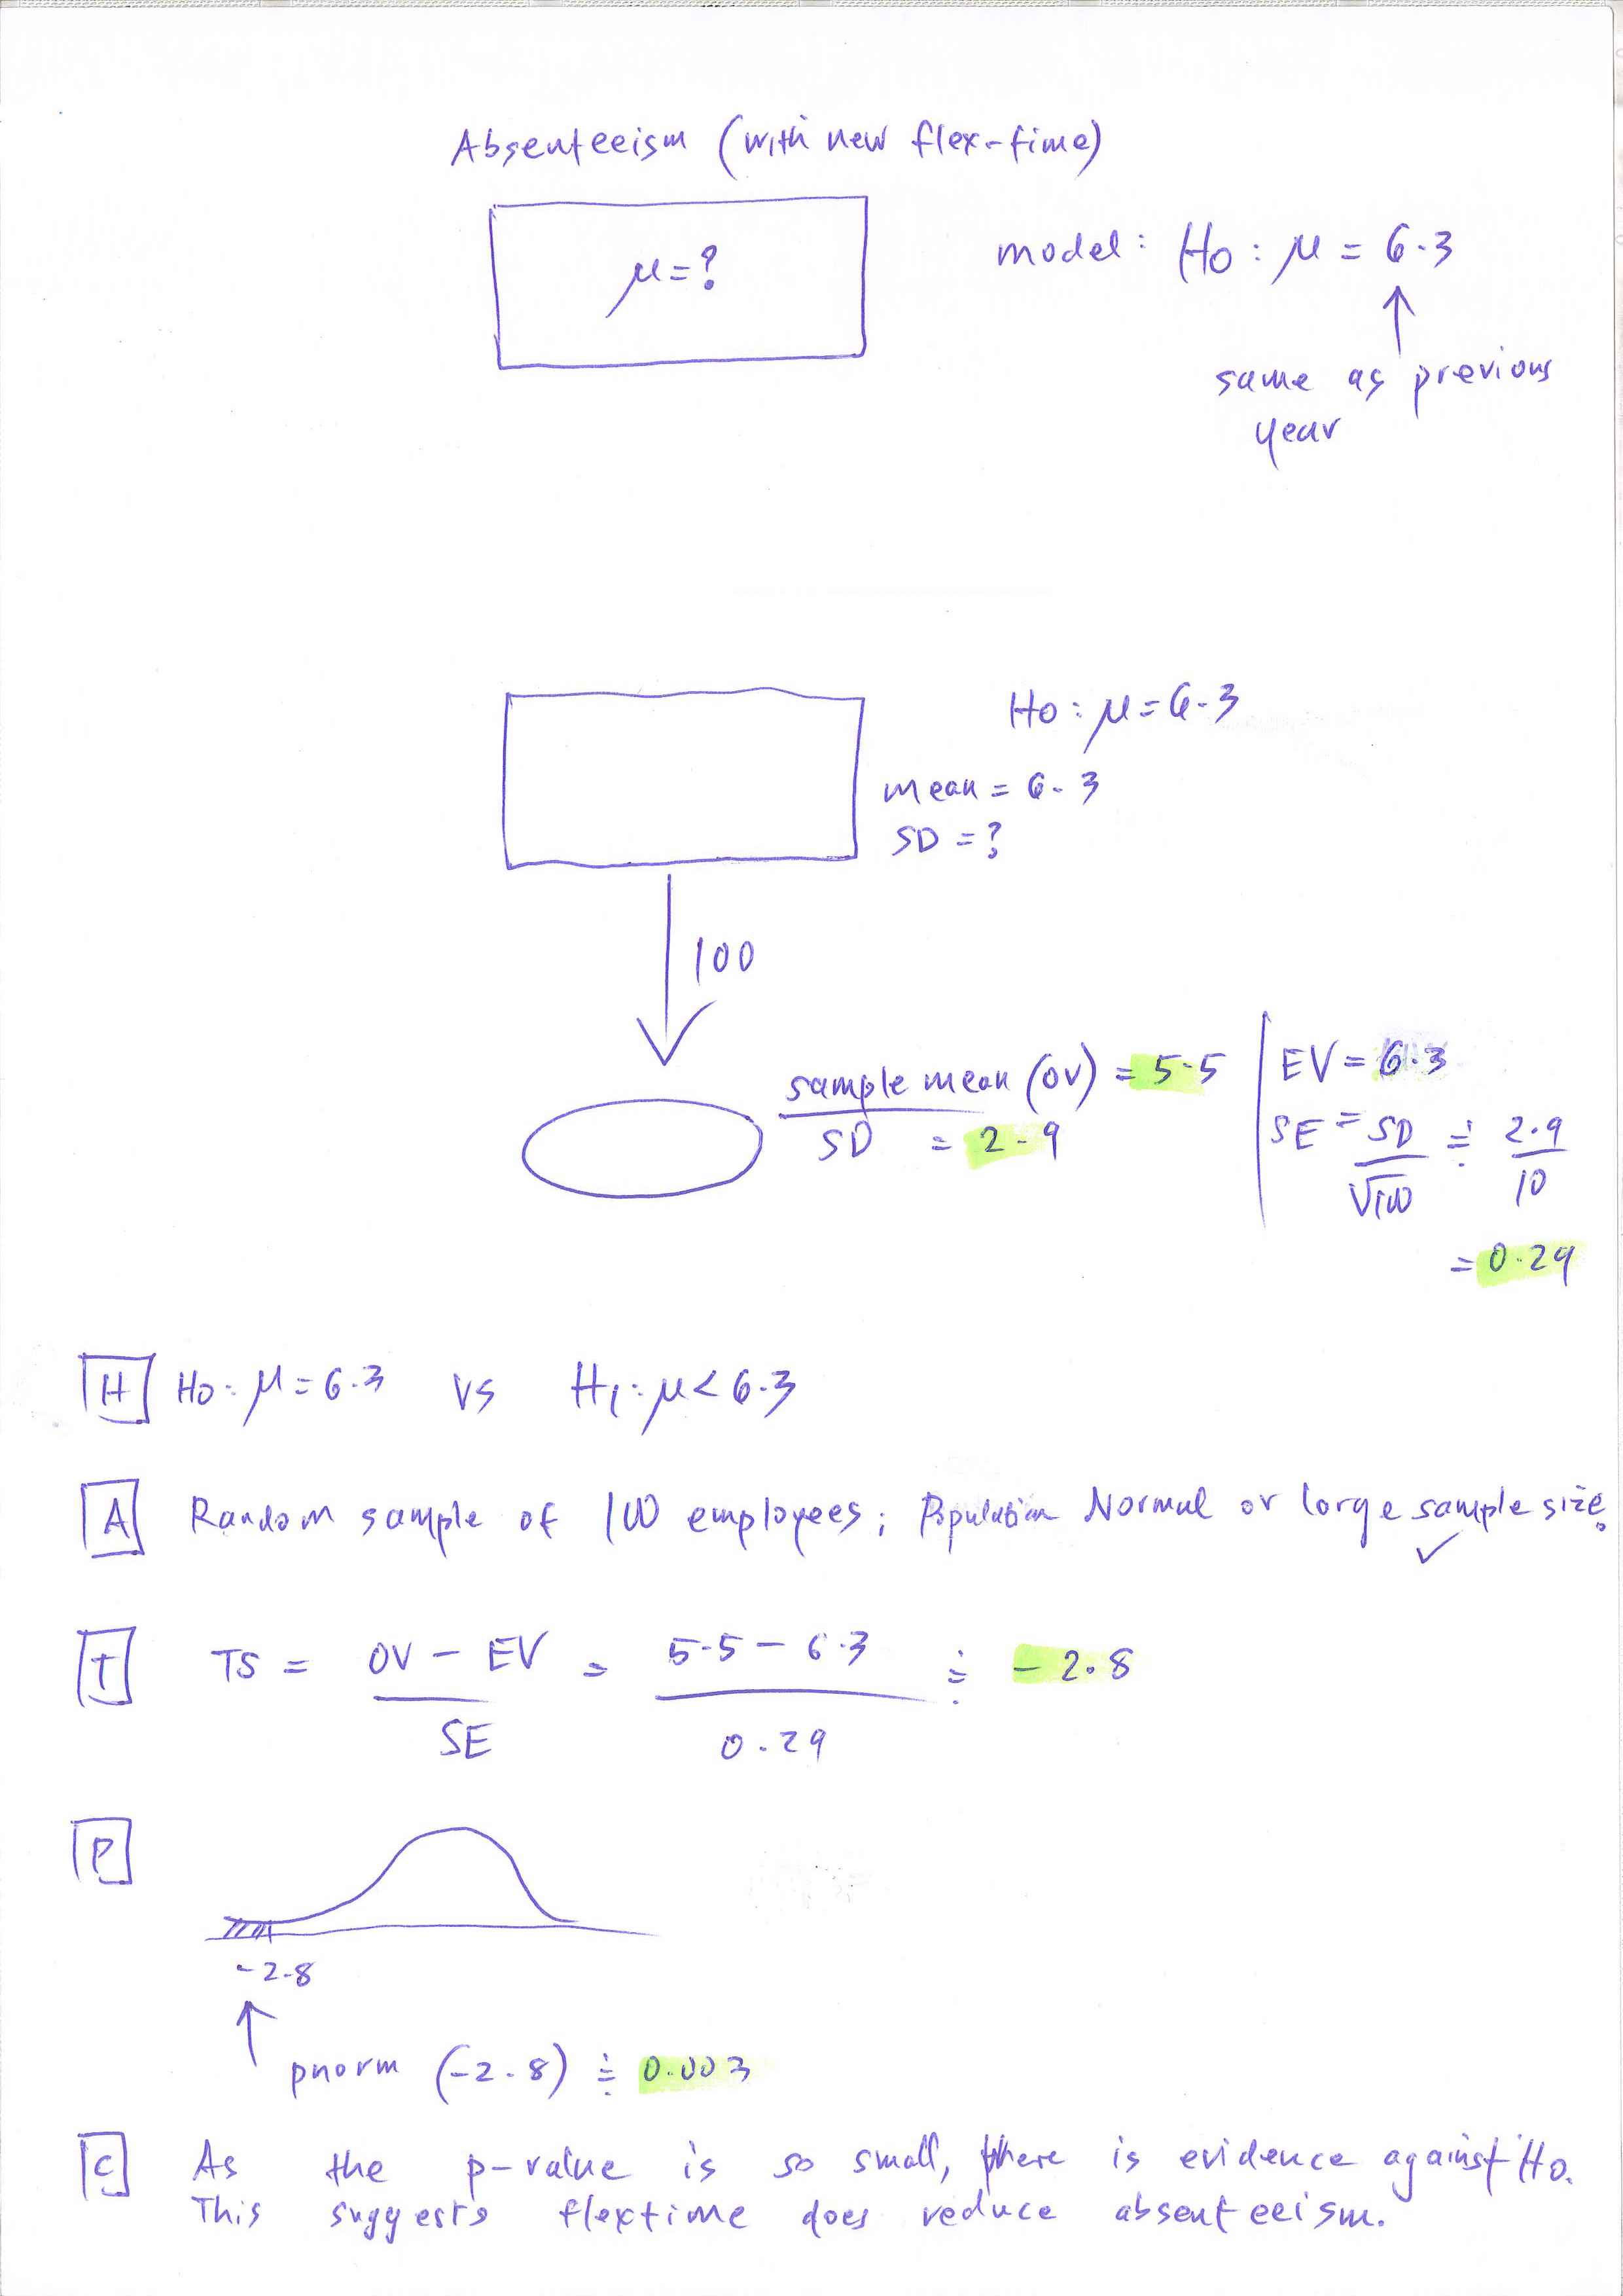 Absenteeism (with new flex-time)
μ=?
model: H0: μ = 6.3
↑
same as previous
year
H0: μ=6.3
mean = 6.3
SD = ?
100
sample mean (OV) = 5.5
SD = 2.9
EV = 6.3
SE = SD/√100 ≑ 2.9/10
= 0.29
H H0: μ=6.3 vs H1: μ< 6.3
A Random sample of 100 employees; Population Normal or large sample size.
✓
T TS = OV - EV / SE = 5.5 - 6.3 / 0.29 ≑ -2.8
P
-2.8
↑
pnorm (-2.8) ≑ 0.003
C As the p-value is so small, there is evidence against H0.
This suggests flextime does reduce absenteeism.